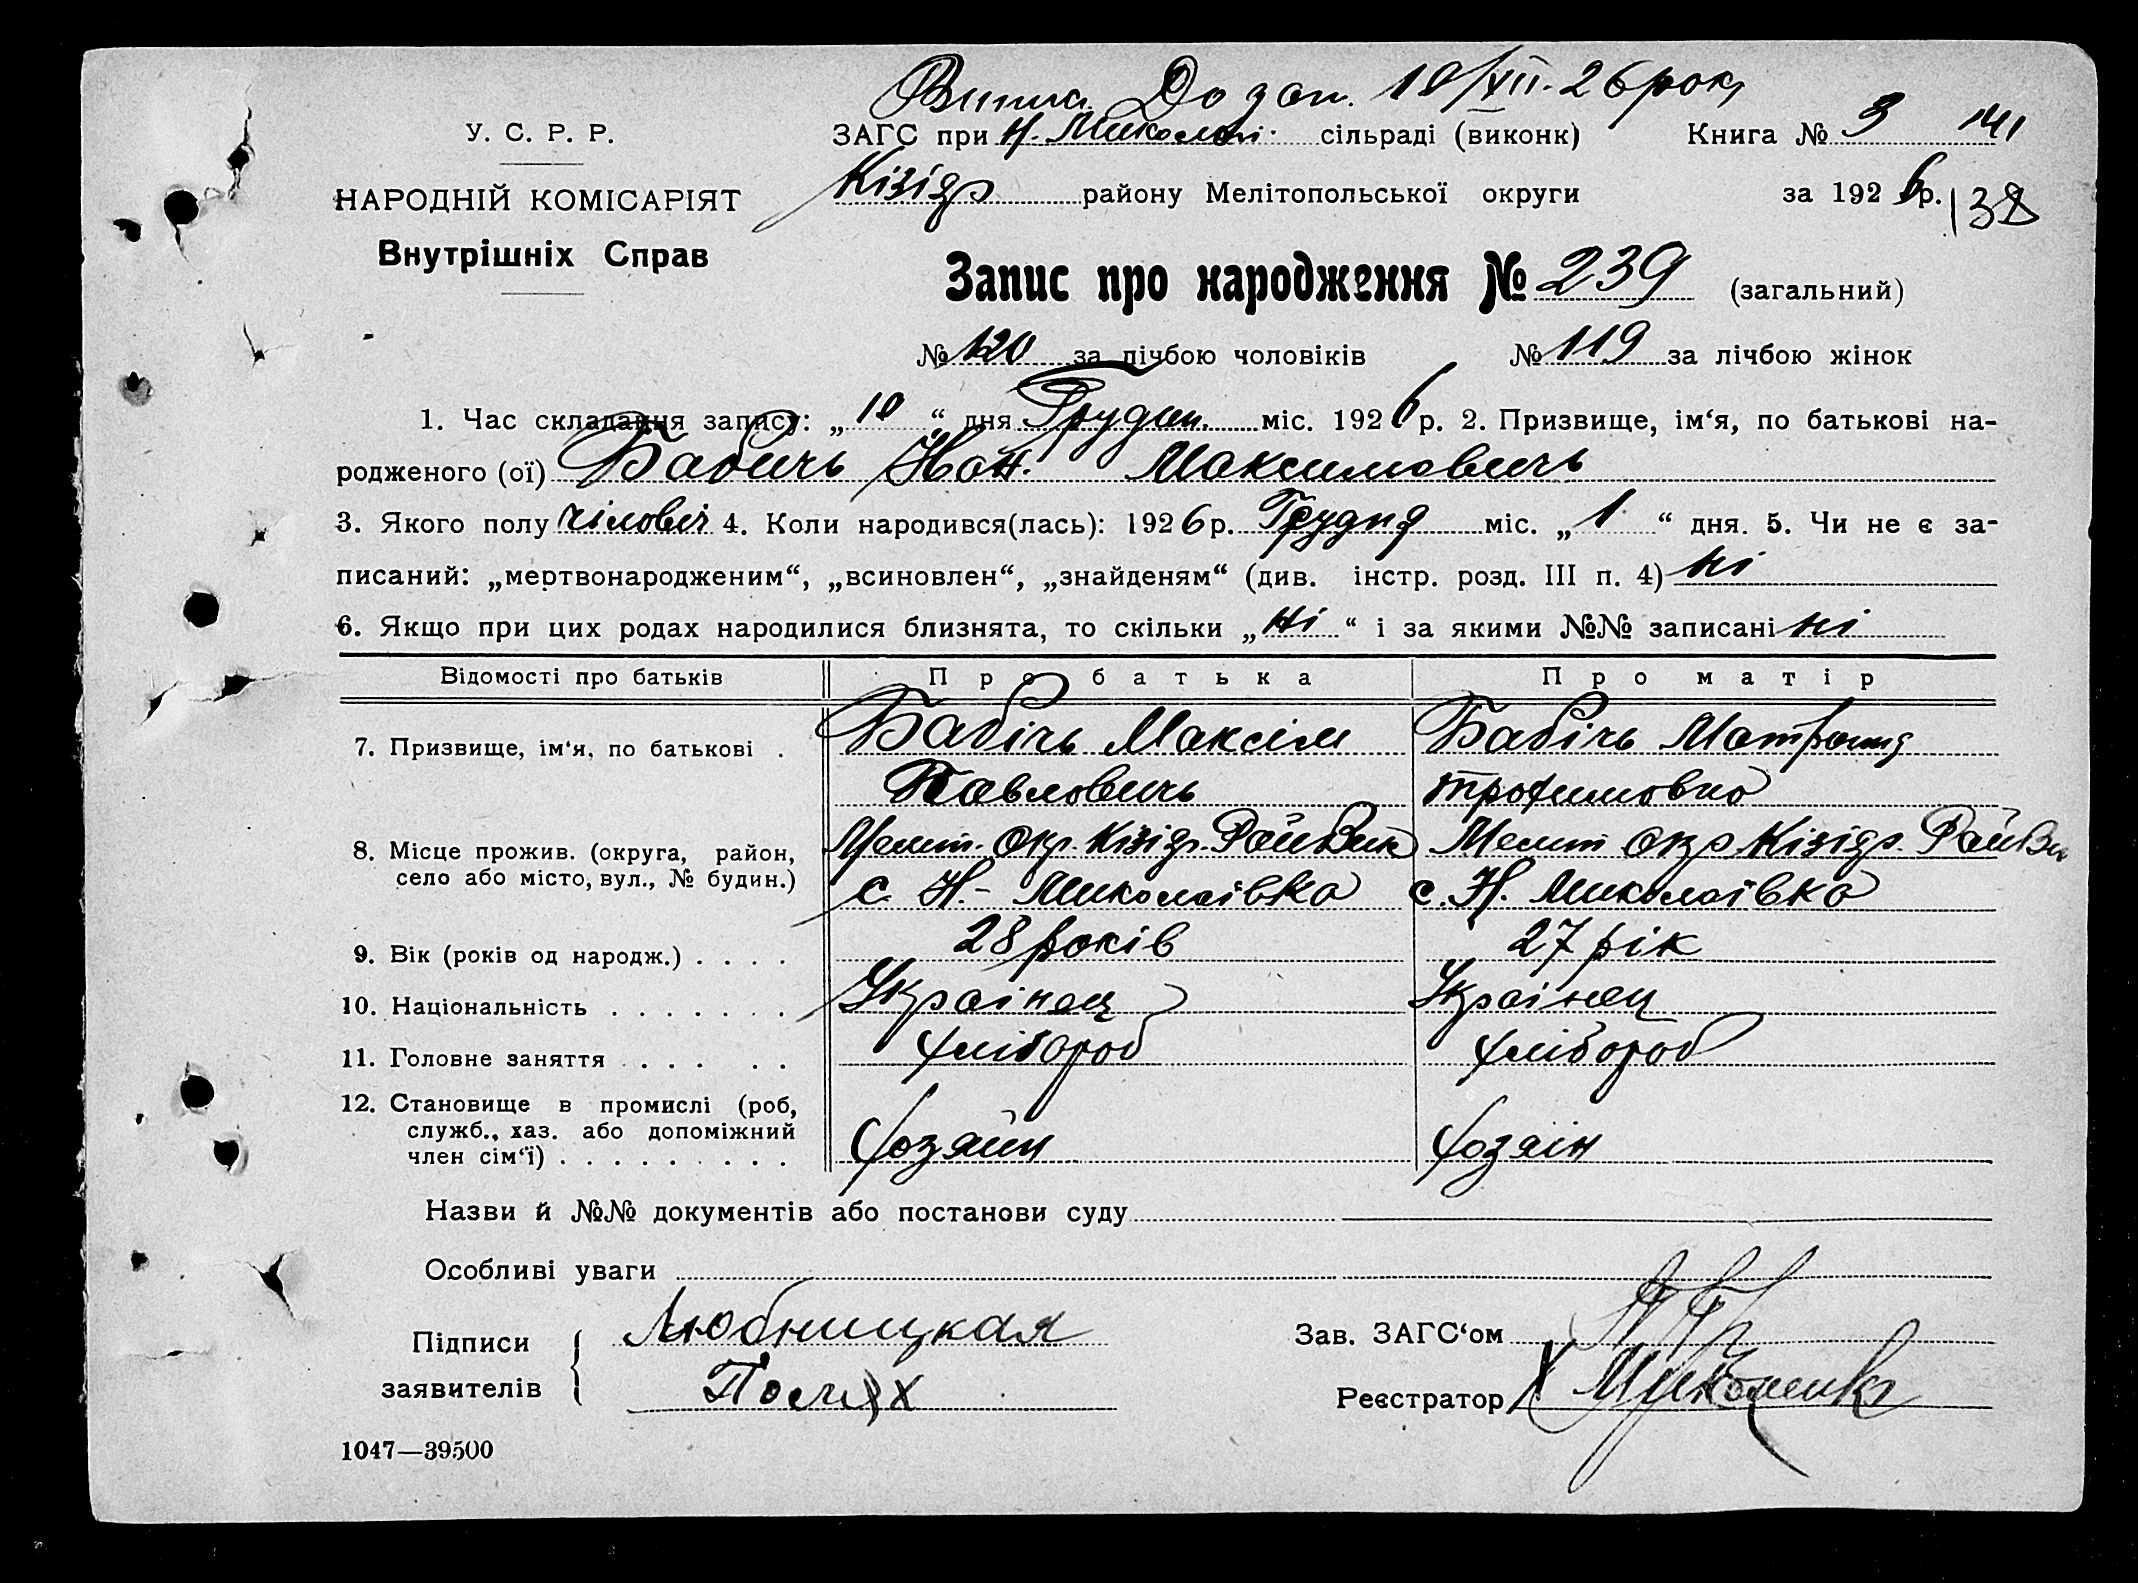 Випис. Додан. 10/XII-26 року
У. С. Р. Р.
ЗАГС при Н. Миколаї сільраді (виконк) Книга № 3 141
НАРОДНІЙ КОМІСАРІЯТ
Кізідр району Мелітопольської округи за 1926 р. 138
Внутрішніх Справ
Запис про народження № 239 (загальний)
№ 120 за лічбою чоловіків № 119 за лічбою жінок
1. Час складання запису: „10“ дня Грудн. міс. 1926 р. 2. Призвище, ім‘я, по батькові на-
родженого (ої) Бабичь Максимовичь
3. Якого полу чіловіч 4. Коли народився(лась): 1926 р. Грудня міс. „1“ дня. 5. Чи не є за-
писаний: „мертвонародженим“, „всиновлен“, „знайденям“ (див. інстр. розд. III п. 4) ні
6. Якщо при цих родах народилися близнята, то скільки „ні“ і за якими №№ записані ні
Відомості про батьків Про батька Про матір
7. Призвище, ім‘я, по батькові . Бабічь Максім Бабічь Мотрона
Павловичь Трофимовна
8. Місце прожив. (округа, район, Мелит. Окр. Кізідр. РайВик Мелит Окр Кізідр. РайВи
село або місто, вул., № будин.) с. Н-Миколаівка с. Н. Миколаівка
9. Вік (років од народж.) . . . . 28 років 27 рік
10. Національність . . . . . . . Украінец Украінец
11. Головне заняття . . . . . . хлібороб хлібороб
12. Становище в промислі (роб,
служб., хаз. або допоміжний
член сім‘ї) . . . . . . . . . хозяин хозяін
Назви й №№ документів або постанови суду
Особливі уваги
Підписи Любницкая Зав. ЗАГС‘ом
заявителів Реєстратор
1047—39500